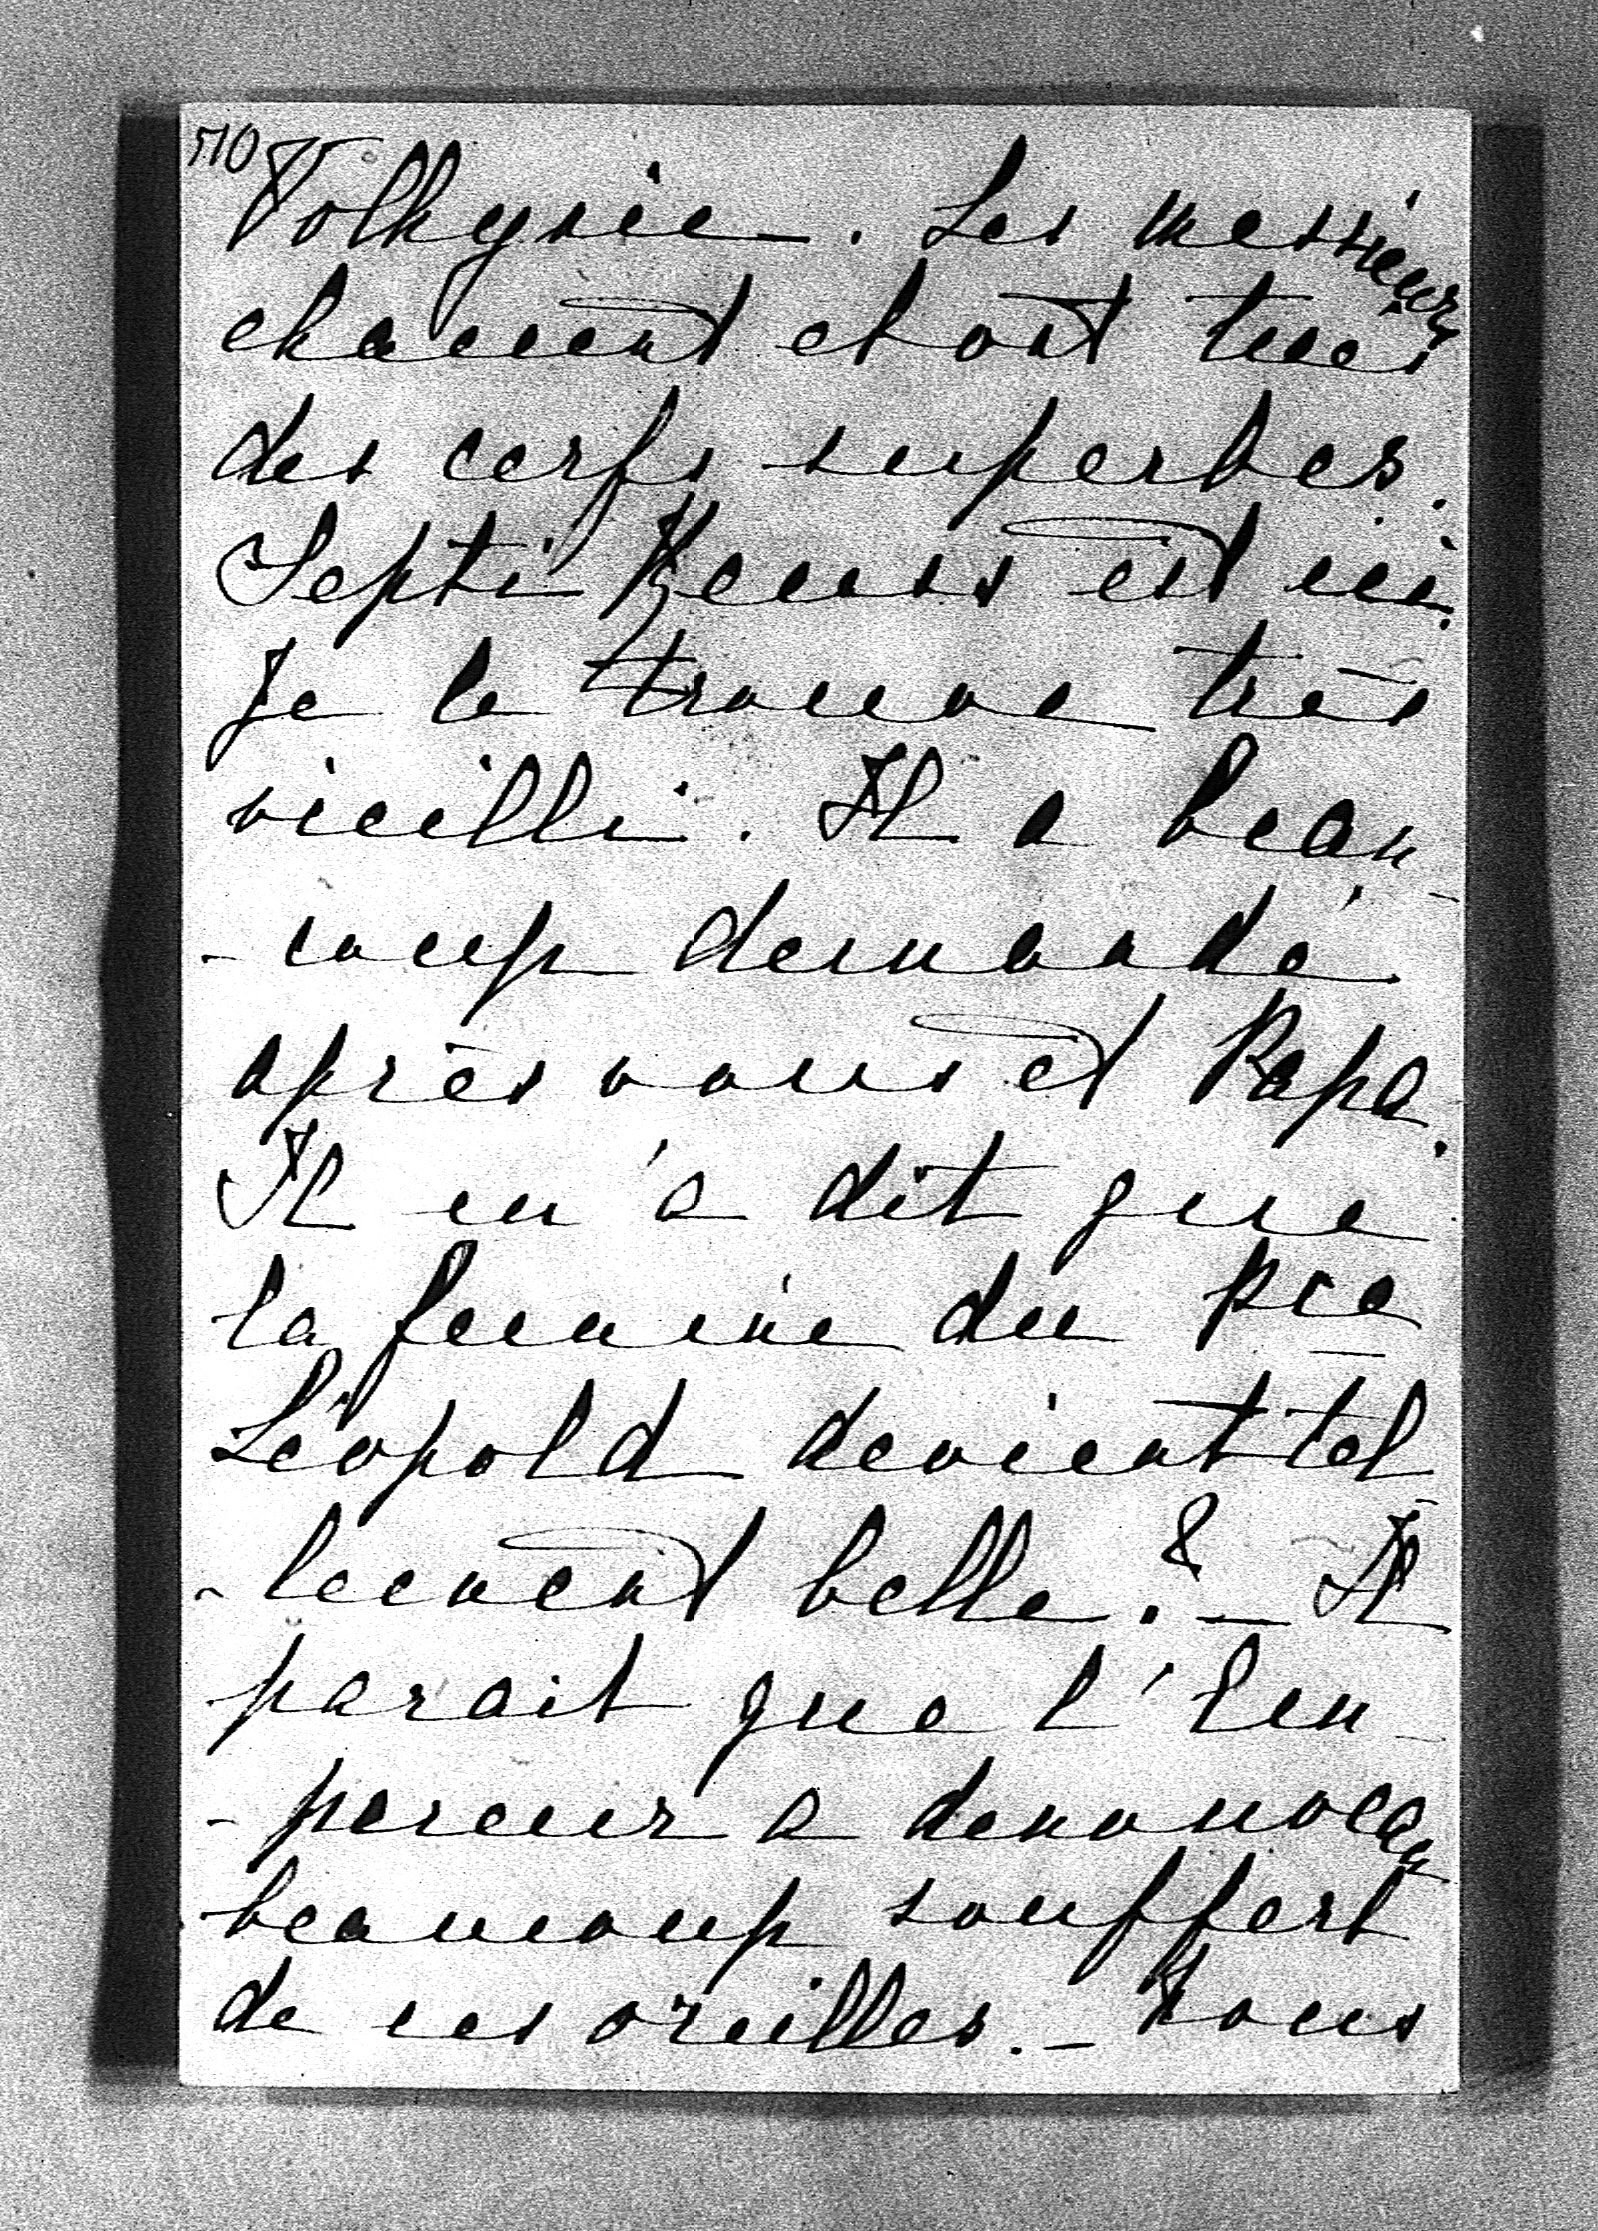 710
Volkyrie. Les messieurs
chassent et ont tués
des cerfs superbes.
Septi Reuss est ici.
Je le trouve très
vieilli. Il a beau-
-coup demandé
après vous et Papa.
Il m'a dit que
la femme du Pce
Léopold devient tel-
-lement belle? – Il
parait que l'Em-
-pereur a de nouveau
beaucoup souffert
de ses oreilles. – Nous